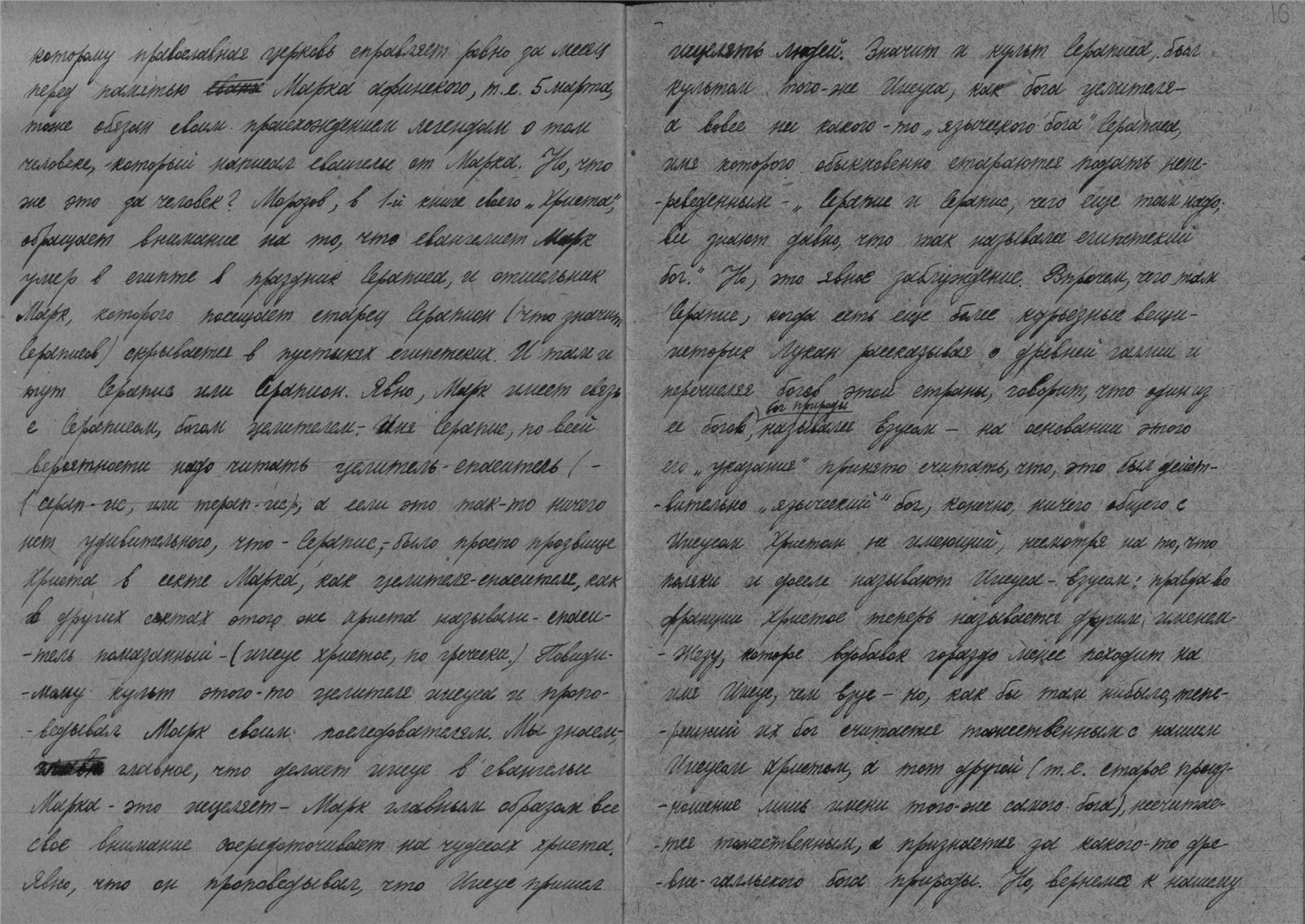 16
которому православная церковь справляет ровно за месяц
перед памятью Марка афинского, т.е. 5 марта,
тоже обязан своим происхождением легендам о том
человеке, который написал евангелье от Марка. Но, что
же это за человек? Морозов, в 1-й книге своего „Христа",
обращает внимание на то, что евангелист Марк
умер в египте в праздник Сераписа, и отшельник
Марк, которого посещает старец Серапион (что значит
Сераписов) скрывается в пустынях египетских. И там и
тут Серапис или Серапион. Явно, Марк имеет связь
с Сераписом, богом целителем. Имя Серапис, по всей
вероятности надо читать целитель-спаситель (-
(серап-ис, или терап-ис), а если это так-то ничего
нет удивительного, что - Серапис,- было просто прозвище
Христа в секте Марка, как целителя-спасителя, как
в других сектах этого же христа называли - спаси-
-тель помазанный - (иисус христос, по гречески.) Повиди-
-мому культ этого-то целителя иисуса и пропо-
-ведывал Марк своим последователям. Мы знаем,
главное, что делает иисус в евангельи
Марка - это исцеляет - Марк главным образом все
свое внимание сосредоточивает на чудесах христа.
Явно, что он проповедывал, что Иисус пришел
исцелять людей. Значит и культ Сераписа, был
культом того-же Иисуса, как бога целителя -
а вовсе не какого-то „языческого бога" Сераписа,
имя которого обыкновенно стараются подать непе-
-реведенным - „Серапис и Серапис, чего еще там надо,
все знают давно, что так назывался египетский
бог." Но, это явное заблуждение. Впрочем, чего там
Серапис, когда есть еще более курьезные вещи -
историк Лукан рассказывая о древней галлии и
перечисляя богов этой страны, говорит, что один из
бог природы
ее богов, назывался Езусом - на основании этого
его „указания" принято считать, что, это был дейст-
-вительно „языческий" бог, конечно, ничего общего с
Иисусом Христом не имеющий, несмотря на то, что
поляки и доселе называют Иисуса - Езусом: правда во
франции Христос теперь называется другим именем
- Жезу, которое вдобавок гораздо менее походит на
имя Иисус, чем Езус - но, как бы там нибыло, тепе-
-решний их бог считается тожественным с нашим
Иисусом Христом, а тот другой (т.е. старое произ-
-ношение лишь имени того-же самого бога), несчитае-
-тся тожественным, а признается за какого-то дре-
-вне-галльского бога природы. Но, вернемся к нашему